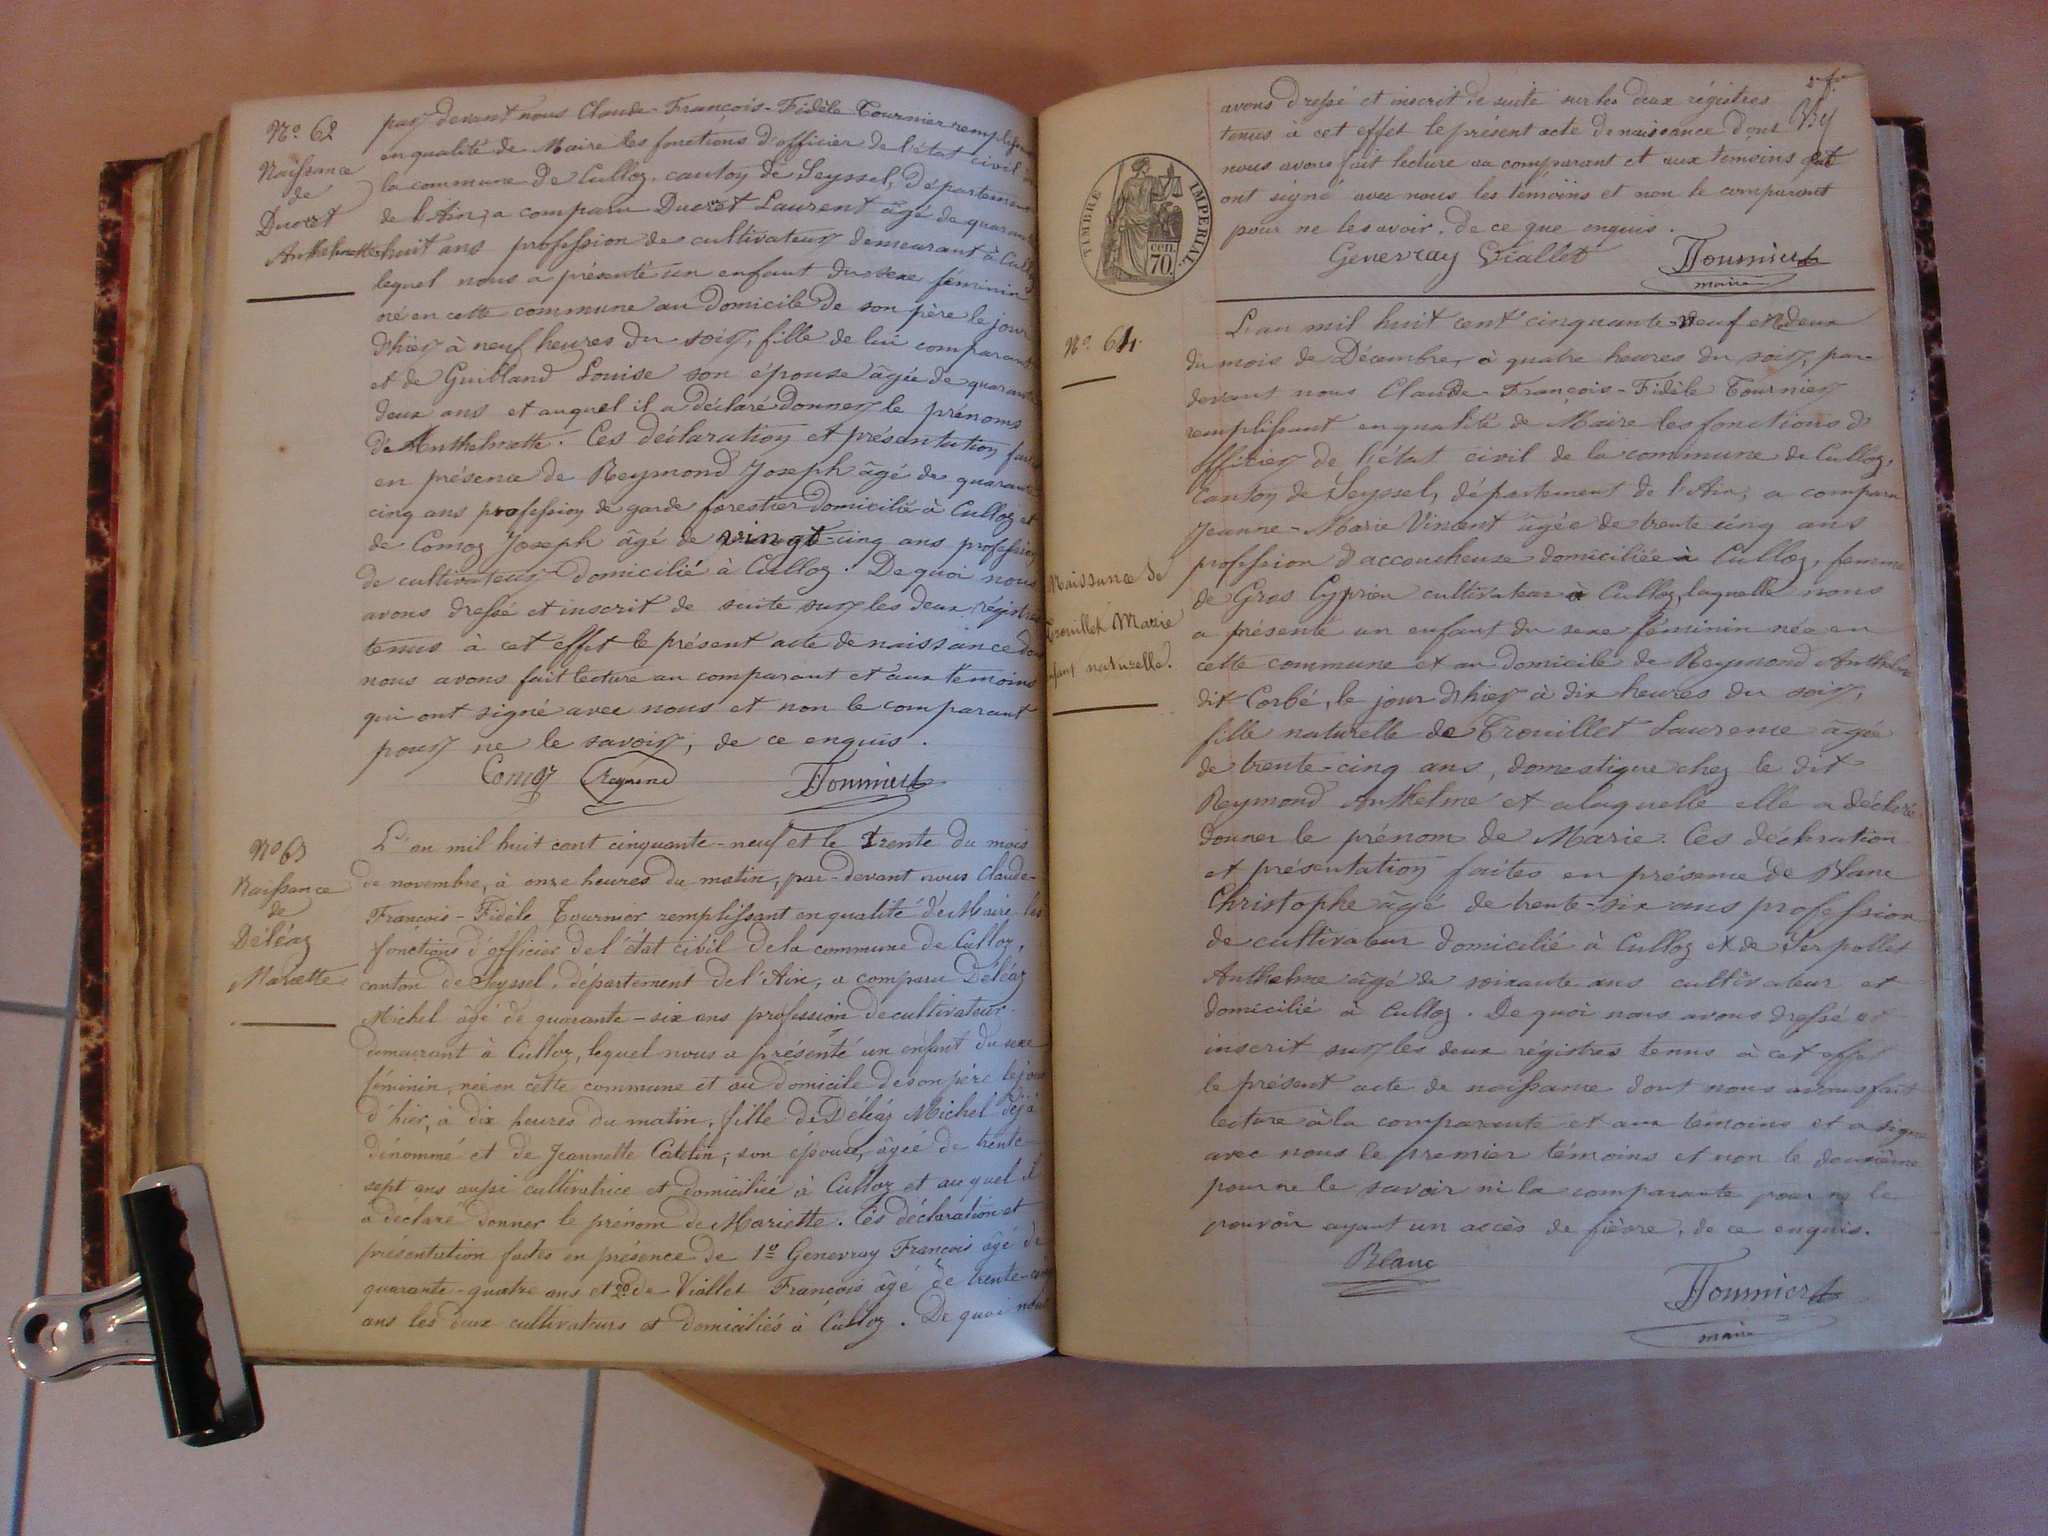 N° 62
Naissance
de
Ducret
Anthelmette
par devant nous Claude-François-Fidèle Tournier remplissant
en qualité de Maire les fonctions d'officier de l'état civil de
la commune de Culloz, canton de Seyssel, département
de l'Ain, a comparu Ducret Laurent âgé de quarante
huit ans profession de cultivateur demeurant à Culloz
lequel nous a présenté un enfant du sexe féminin
né en cette commune au domicile de son père le jour
d'hier à neuf heures du soir, fille de lui comparant
et de Guilland Louise son épouse âgée de quarante
deux ans et auquel il a déclaré donner le prénoms
de Anthelmette. Ces déclaration et présentation faites
en présence de Reymond Joseph âgé de quarante
cinq ans profession de garde forestier domicilié à Culloz et
de Comoz Joseph âgé de vingt-cinq ans profession
de cultivateur domicilié à Culloz. De quoi nous
avons dressé et inscrit de suite sur les deux régistres
tenus à cet effet le présent acte de naissance dont
nous avons fait lecture au comparant et aux témoins
qui ont signé avec nous et non le comparant
pour ne le savoir, de ce enquis.
Comoz Reymond Tournier
N° 63
Naissance
de
Déléaz
Mariette
L'an mil huit cent cinquante-neuf et le trente du mois
de novembre, à onze heures du matin, par-devant nous Claude-
François-Fidèle Tournier remplissant en qualité de Maire les
fonctions d'officier de l'état civil de la commune de Culloz,
canton de Seyssel, département de l'Ain, a comparu Déléaz
Michel âgé de quarante-six ans profession de cultivateur
demeurant à Culloz, lequel nous a présenté un enfant du sexe
féminin, née en cette commune et au domicile de son père le jour
d'hier, à dix heures du matin, fille de Déléaz Michel déjà
dénommé et de Jeannette Catelin, son épouse, âgée de trente
sept ans aussi cultivatrice et domiciliée à Culloz et auquel il
a déclaré donner le prénom de Mariette. Ces déclaration et
présentation faites en présence de 1° Genevray François âgé de
quarante-quatre ans et 2° de Viallet François âgé de trente-cinq
ans les deux cultivateurs et domiciliés à Culloz. De quoi nous
avons dressé et inscrit de suite sur les deux régistres
tenus à cet effet le présent acte de naissance dont
nous avons fait lecture au comparant et aux témoins qui
ont signé avec nous les témoins et non le comparant
pour ne le savoir. de ce que enquis.
Genevray Viallet Tournier
maire
TIMBRE IMPERIAL
cen.
70.
N° 64.
Naissance de
Trouillet Marie
enfant naturelle.
L'an mil huit cent cinquante-neuf et deux
du mois de Décembre, à quatre heures du soir, par-
devant nous Claude-François-Fidèle Tournier
remplissant en qualité de Maire les fonctions d'
officier de l'état civil de la commune de Culloz,
Canton de Seyssel, département de l'Ain, a comparu
Jeanne-Marie Vincent âgée de trente cinq ans
profession d'accoucheuse domiciliée à Culloz, femme
de Gros Cyprien cultivateur à Culloz, laquelle nous
a présenté un enfant du sexe féminin née en
cette commune et au domicile de Reymond Anthelme
dit Corbé, le jour d'hier à dix heures du soir,
fille naturelle de Trouillet Laurence âgée
de trente-cinq ans, domestique chez le dit
Reymond Anthelme et a laquelle elle a déclaré
donner le prénom de Marie. Ces déclaration
et présentation faites en présence de Blanc
Christophe âgé de trente-six ans profession
de cultivateur domicilié à Culloz et de Serpollet
Anthelme âgé de soixante ans cultivateur et
domicilié à Culloz. De quoi nous avons dressé et
inscrit sur les deux régistres tenus à cet effet
le présent acte de naissance dont nous avons fait
lecture à la comparante et aux témoins et a signé
avec nous le premier témoins et non le deuxième
pour ne le savoir ni la comparante pour ne le
pouvoir ayant un accès de fièvre, de ce enquis.
Blanc
Tournier
maire